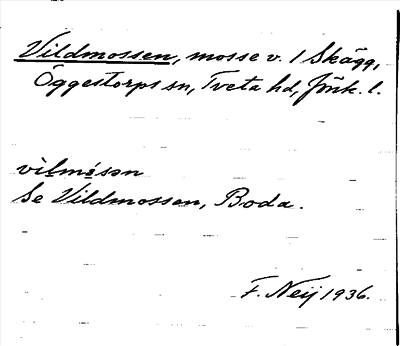 Vildmossen, mosse v. 1 Skägg,
Öggestorps sn, Tveta hd, Jönk. l.
vìlmǿsən
Se Vildmossen, Boda.
F. Neij 1936.